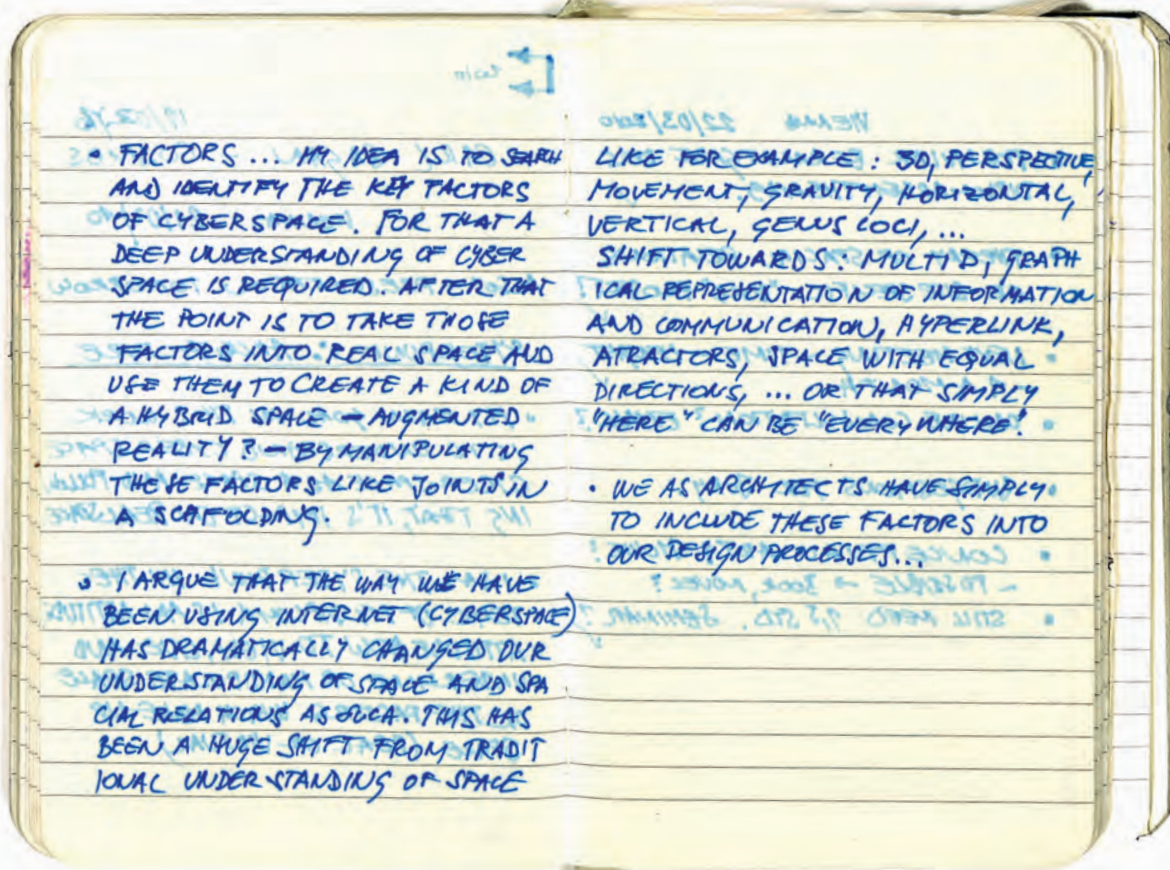 • FACTORS ... MY IDEA IS TO SEARH
AND IDENTIFY THE KEY FACTORS
OF CYBERSPACE. FOR THAT A
DEEP UNDERSTANDING OF CYBER
SPACE IS REQUIRED. AFTER THAT
THE POINT IS TO TAKE THOSE
FACTORS INTO REAL SPACE AND
USE THEM TO CREATE A KIND OF
A HYBRID SPACE – AUGMENTED
REALITY? – BY MANIPULATING
THESE FACTORS LIKE JOINTS IN
A SCAFFOLDING.
• I ARGUE THAT THE WAY WE HAVE
BEEN USING INTERNET (CYBERSPACE)
HAS DRAMATICALLY CHANGED OUR
UNDERSTANDING OF SPACE AND SPA
CIAL RELATIONS AS SUCH. THIS HAS
BEEN A HUGE SHIFT FROM TRADIT
IONAL UNDERSTANDING OF SPACE
LIKE FOR EXAMPLE: 3D, PERSPECTIVE,
MOVEMENT, GRAVITY, HORIZONTAL,
VERTICAL, GENUS LOCI, ...
SHIFT TOWARDS: MULTI D, GRAPH
ICAL REPRESENTATION OF INFORMATION
AND COMMUNICATION, HYPERLINK,
ATRACTORS, SPACE WITH EQUAL
DIRECTIONS, ... OR THAT SIMPLY
"HERE" CAN BE "EVERYWHERE".
• WE AS ARCHITECTS HAVE SIMPLY
TO INCLUDE THESE FACTORS INTO
OUR DESIGN PROCESSES...